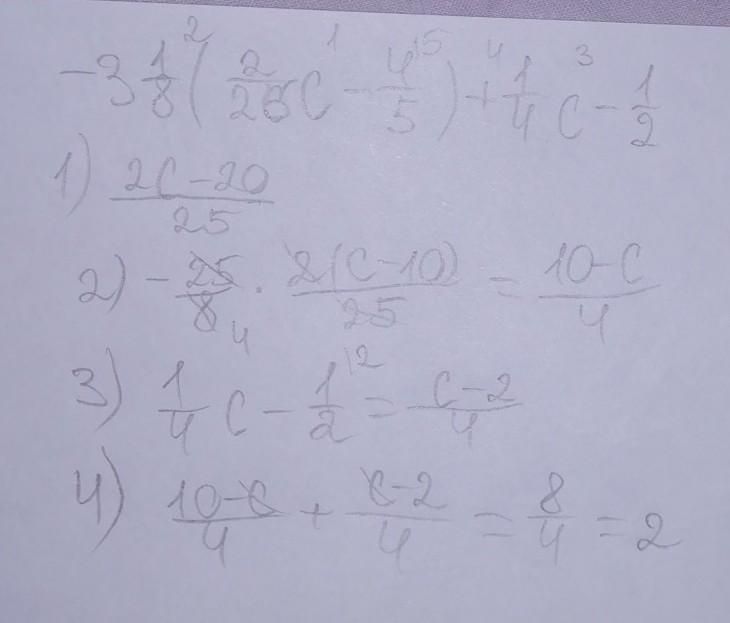 -3 1/8 ( 2/25 c - 4/5 ) + 1/4 c - 1/2
1) (2c - 20)/25
2) - 25/8 · 2(c - 10)/25 = (10 - c)/4
3) 1/4 c - 1/2 = (c - 2)/4
4) (10 - c)/4 + (c - 2)/4 = 8/4 = 2